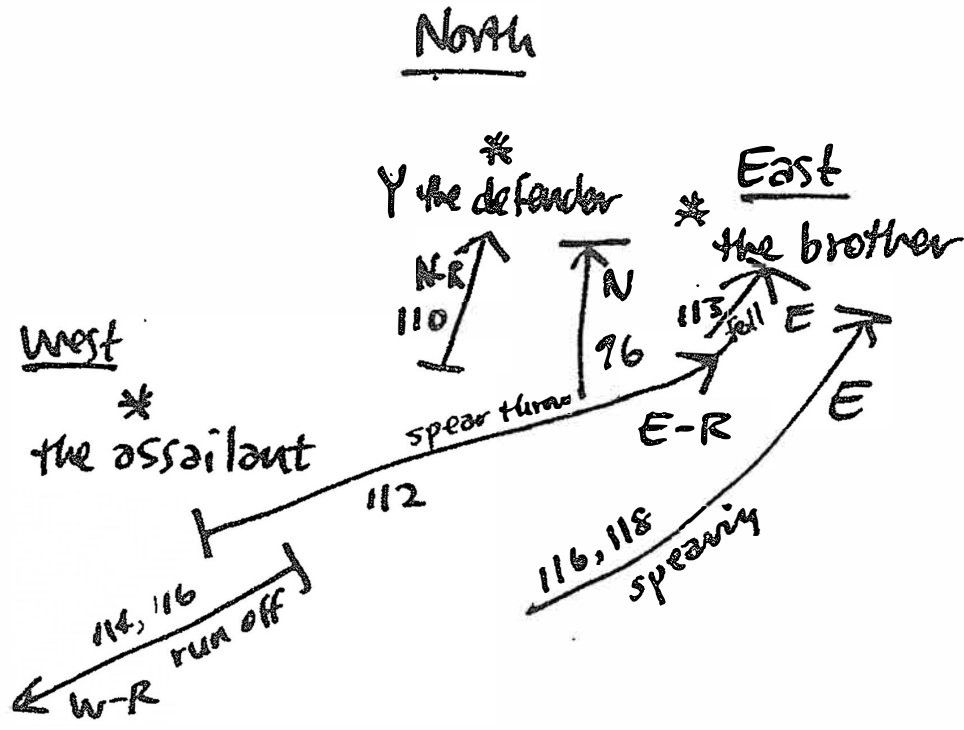 North
Y the defender
East
the brother
N-R
110
N
96
113
fell
E
E
West
the assailant
spear throw
E-R
112
116, 118
spearing
114, 116
run off
W-R